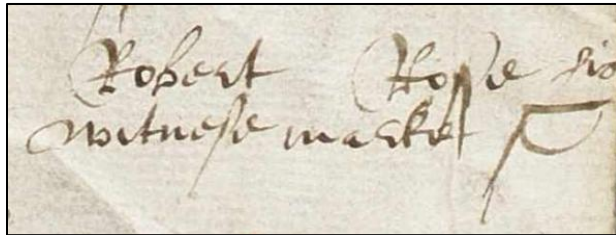 Robert Rosse his
witnese marke